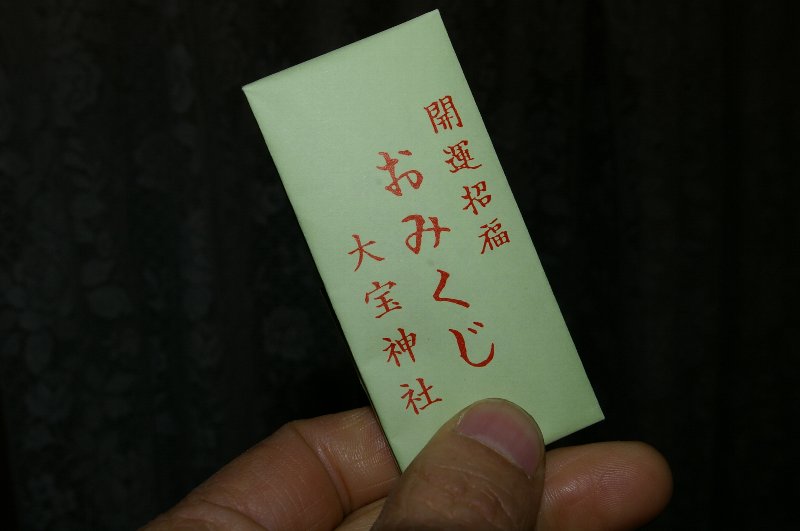 開運招福
おみくじ
大宝神社